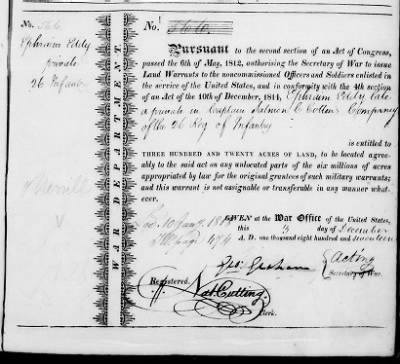 No. 566.
Ephraim Eddy
private
26 Infantry
WAR DEPARTMENT
No. 566.
Pursuant to the second section of an Act of Congress,
passed the 6th of May, 1812, authorising the Secretary of War to issue
Land Warrants to the noncommissioned Officers and Soldiers enlisted in
the service of the United States, and in conformity with the 4th section
of an Act of the 10th December, 1814, Ephraim Eddy late
a private in Captain Salmon C Cotton's Company
of the 26 Reg of Infantry
is entitled to
THREE HUNDRED AND TWENTY ACRES OF LAND, to be located agree-
ably to the said act on any unlocated parts of the six millions of acres
appropriated by law for the original grantees of such military warrants;
and this warrant is not assignable or transferable in any manner what-
ever.
GIVEN at the War Office of the United States,
this 3 day of December
A. D. one thousand eight hundred and seventeen
Geo: Graham
Acting
Secretary of War.
Registered.
Nat. Cutting
Clerk.